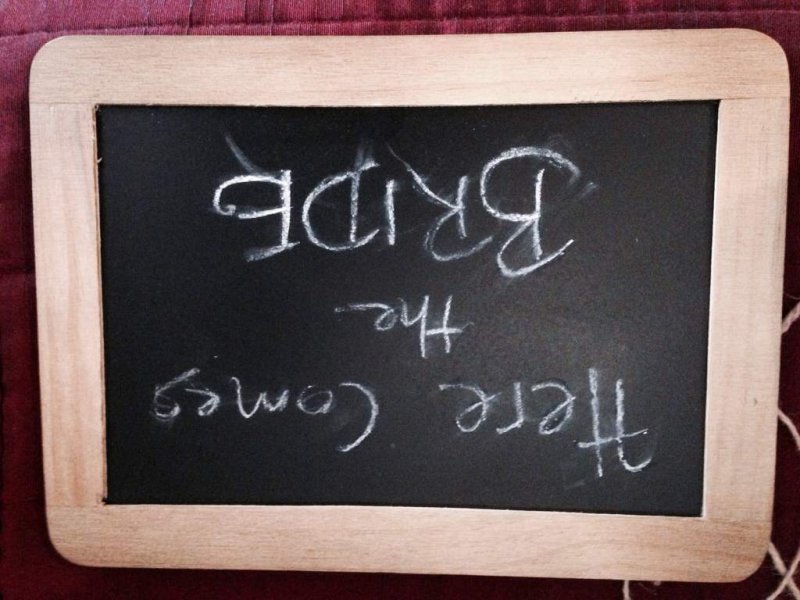 Here Comes
the
BRIDE